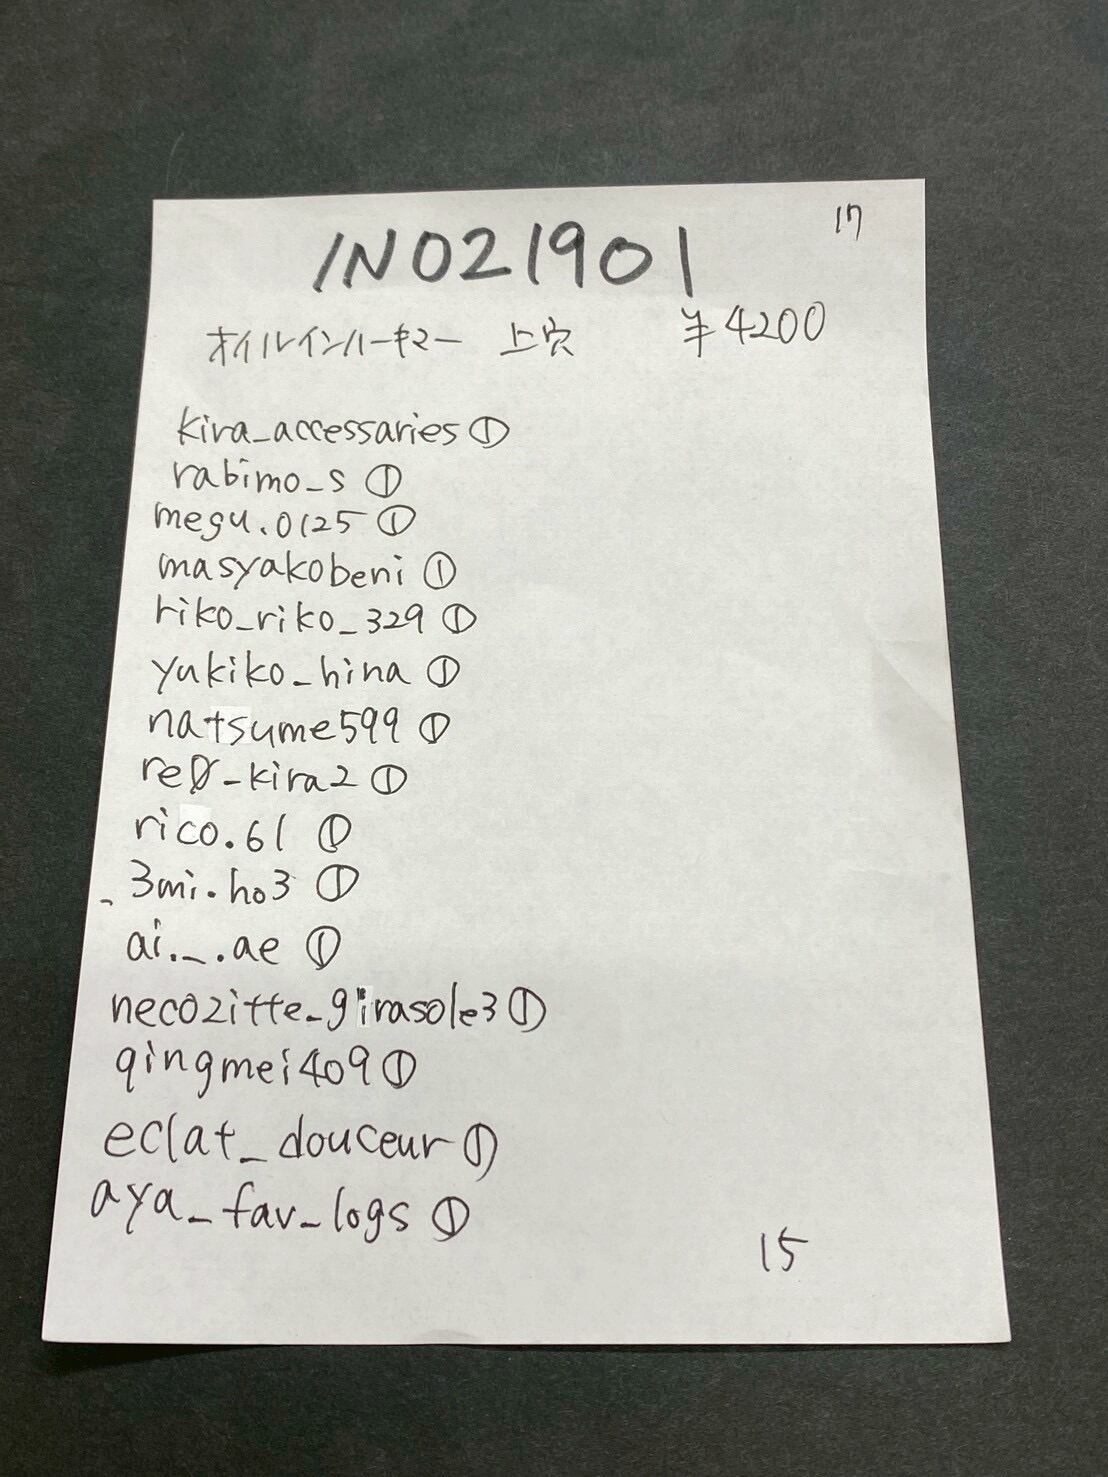 17
IN021901
オイルインハーキマー 上穴 ¥4200
kira_accessaries ①
rabimo_s ①
megu.0125 ①
masyakobeni ①
riko_riko_329 ①
yukiko_hina ①
natsume599 ①
re0_kira2 ①
rico.61 ①
_3mi.ho3 ①
ai._.ae ①
necozitte_girasole3 ①
qingmei409 ①
eclat_douceur ①
aya_fav_logs ①
15